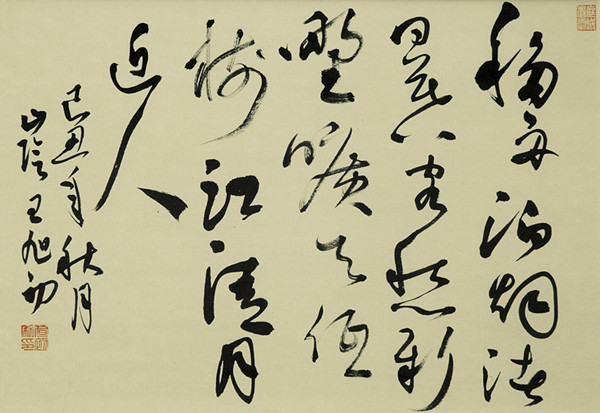 移舟泊烟渚
日暮客愁新
野旷天低
树江清月
近人
己丑年秋月
山阴王旭初